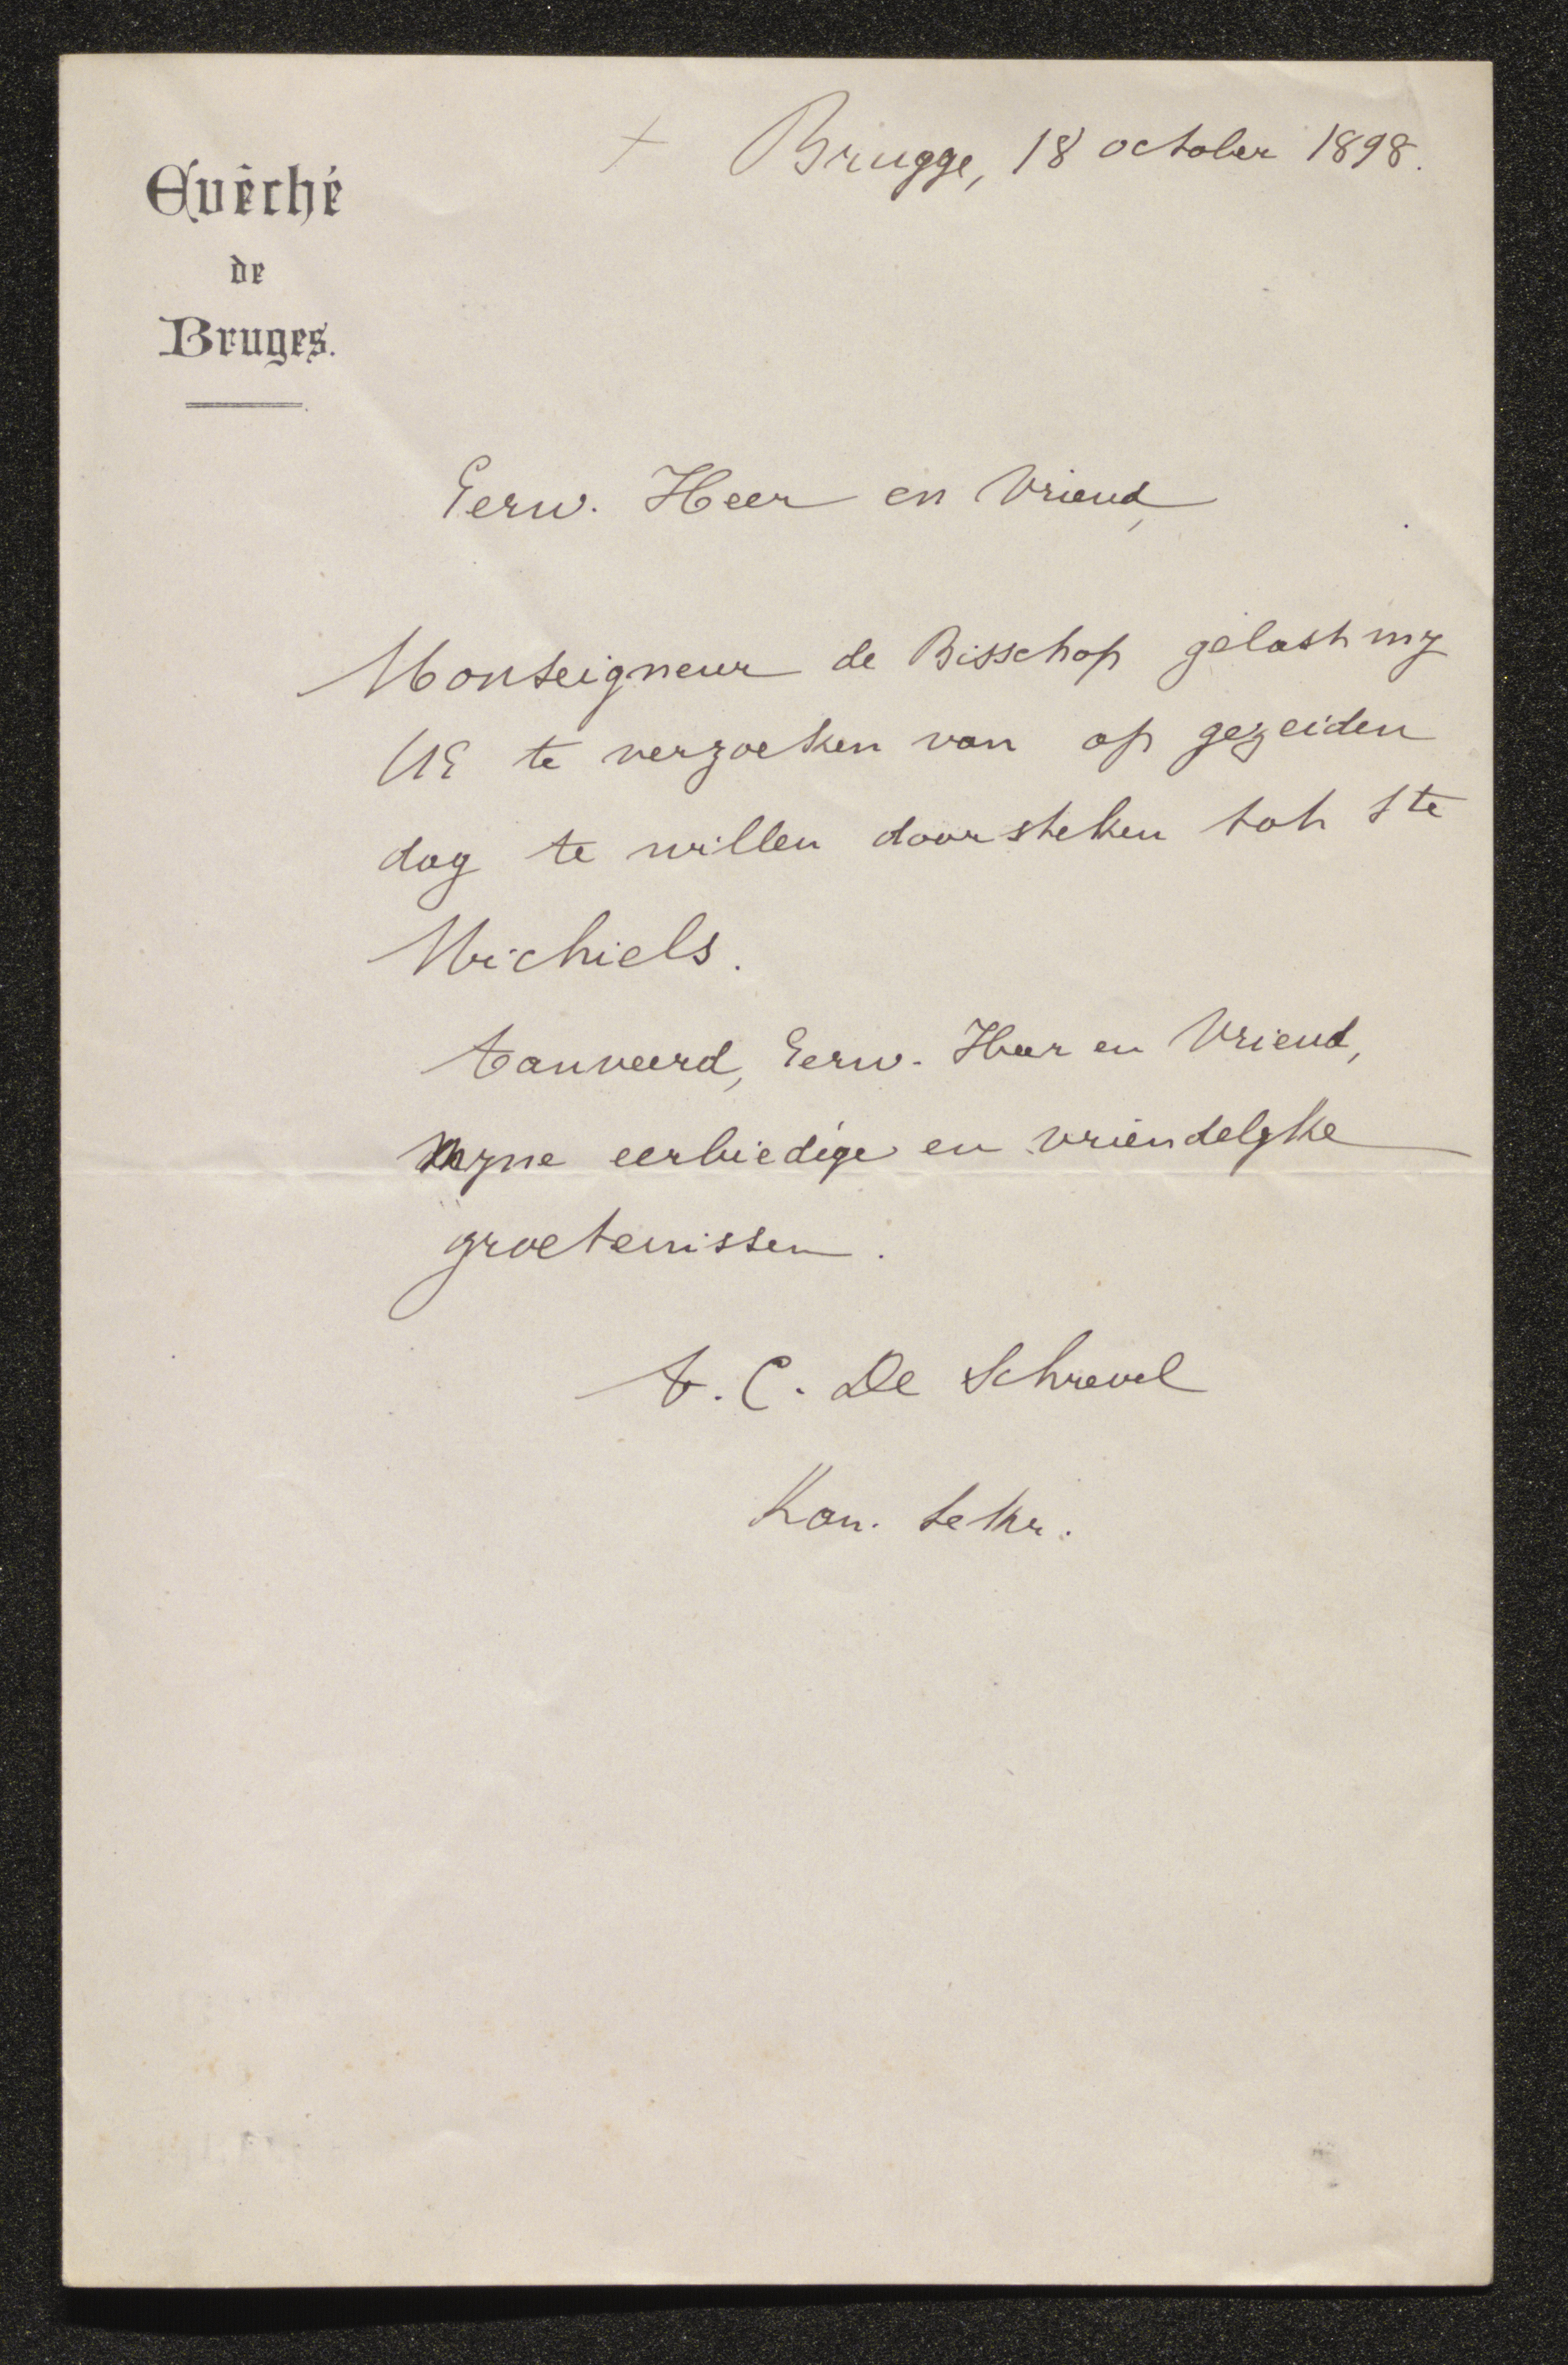 Evêché
de
Bruges.
+ Brugge, 18 october 1898.
Eerw. Heer en Vriend,
Monseigneur de Bisschop gelast my
UE te verzoeken van op gezeiden
dag te willen doorsteken tot Ste
Michiels.
Aanveerd, Eerw. Heer en Vriend,
myne eerbiedige en vriendelyke
groetenissen.
A. C. De Schrevel
Kan. sekr.